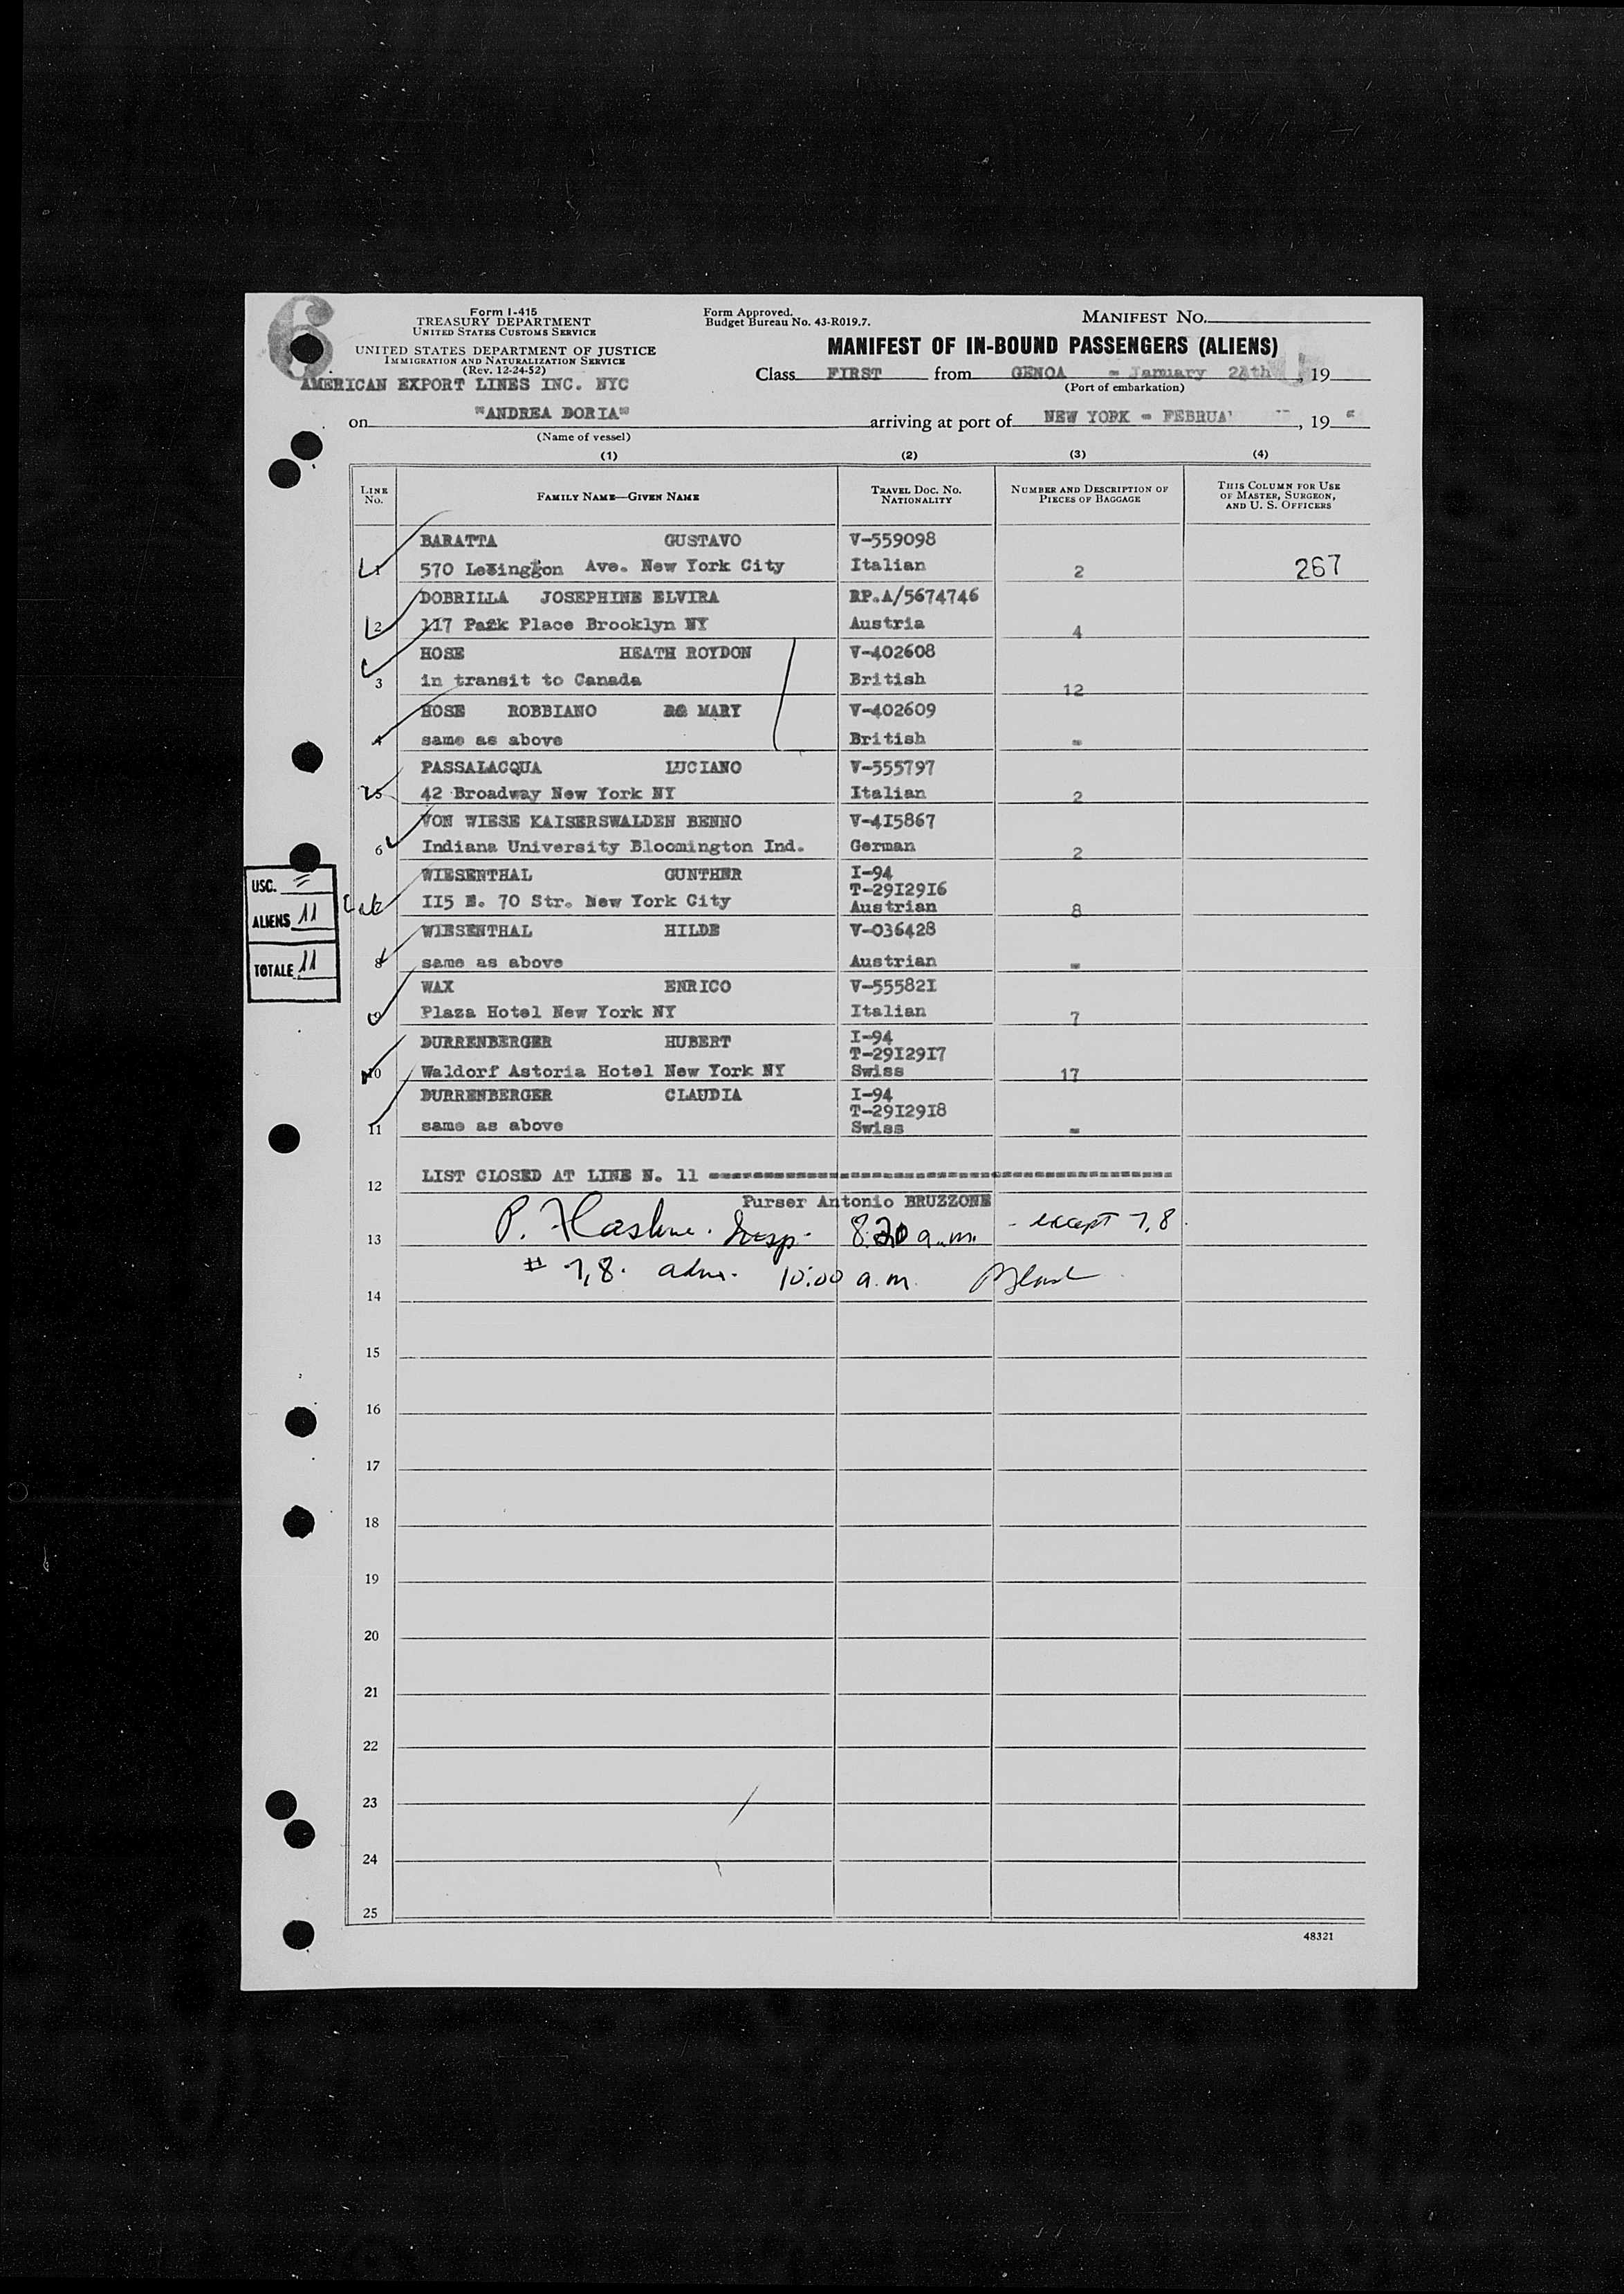 6
Form I-415
TREASURY DEPARTMENT
UNITED STATES CUSTOMS SERVICE
UNITED STATES DEPARTMENT OF JUSTICE
IMMIGRATION AND NATURALIZATION SERVICE
(Rev. 12-24-52)
AMERICAN EXPORT LINES INC. NYC
Form Approved.
Budget Bureau No. 43-R019.7.
MANIFEST NO.
MANIFEST OF IN-BOUND PASSENGERS (ALIENS)
Class FIRST from GENOA - January , 19
(Port of embarkation)
on "ANDREA DORIA" arriving at port of NEW YORK - , 19
(Name of vessel)
(1) (2) (3) (4)
LINE NO. FAMILY NAME—GIVEN NAME TRAVEL DOC. NO. NATIONALITY NUMBER AND DESCRIPTION OF PIECES OF BAGGAGE THIS COLUMN FOR USE OF MASTER, SURGEON, AND U. S. OFFICERS
BARATTA GUSTAVO V-559098
1 570 Ave. New York City Italian 2 267
DOBRILLA JOSEPHINE ELVIRA RP.A/5674746
2 117 Park Place Brooklyn NY Austria 4
HOSE HEATH ROYDON V-402608
3 in transit to Canada British 12
HOSE ROBBIANO MARY V-402609
4 same as above British -
PASSALACQUA LUCIANO V-555797
5 42 Broadway New York NY Italian 2
VON WIESE KAISERSWALDEN BENNO V-4I5867
6 Indiana University Bloomington Ind. German 2
WIESENTHAL GUNTHER I-94
T-29I29I6
II5 E. 70 Str. New York City Austrian 8
WIESENTHAL HILDE V-036428
8 same as above Austrian -
WAX ENRICO V-55582I
9 Plaza Hotel New York NY Italian 7
DURRENBERGER HUBERT I-94
T-29I29I7
10 Waldorf Astoria Hotel New York NY Swiss 17
DURRENBERGER CLAUDIA I-94
T-29I29I8
11 same as above Swiss -
USC. =
ALIENS 11
TOTALE 11
12 LIST CLOSED AT LINE N. 11 ------------------------------
Purser Antonio BRUZZONE
13 P. Insp. 8:30 a.m. - except 7,8.
# 7,8. adm. 10:00 a.m.
14
15
16
17
18
19
20
21
22
23
24
25
48321